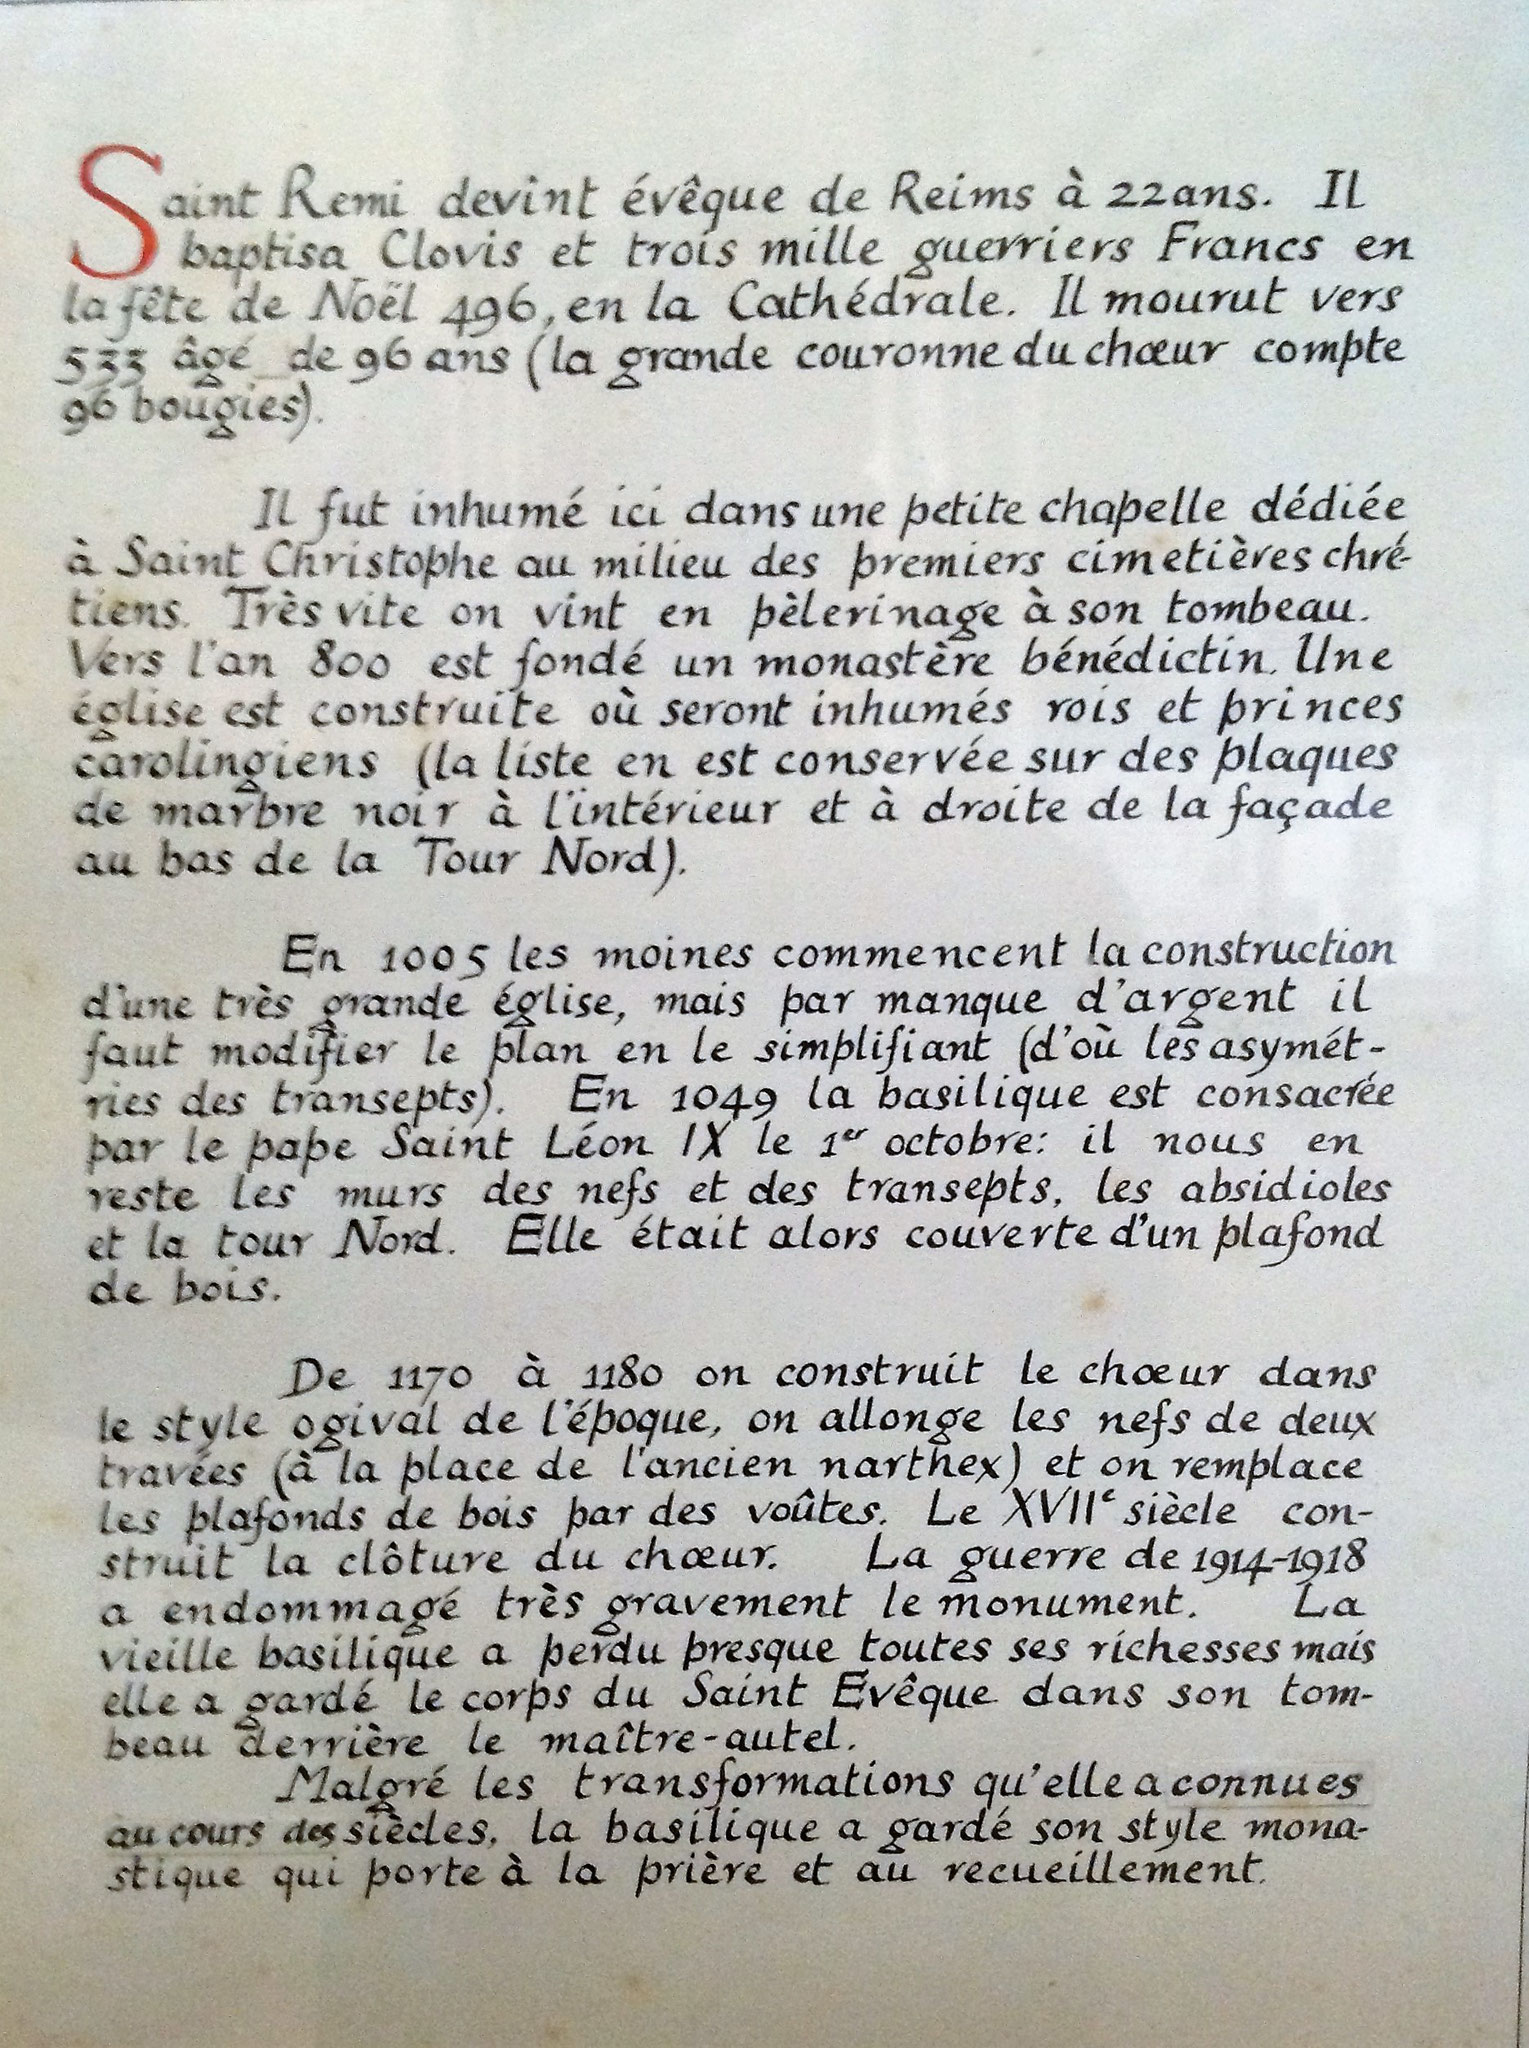 Saint Remi devint évêque de Reims à 22 ans. Il
baptisa Clovis et trois mille guerriers Francs en
la fête de Noël 496, en la Cathédrale. Il mourut vers
533 âgé de 96 ans (la grande couronne du chœur compte
96 bougies).
Il fut inhumé ici dans une petite chapelle dédiée
à Saint Christophe au milieu des premiers cimetières chré-
tiens. Très vite on vint en pèlerinage à son tombeau.
Vers l'an 800 est fondé un monastère bénédictin. Une
église est construite où seront inhumés rois et princes
carolingiens (la liste en est conservée sur des plaques
de marbre noir à l'intérieur et à droite de la façade
au bas de la Tour Nord).
En 1005 les moines commencent la construction
d'une très grande église, mais par manque d'argent il
faut modifier le plan en le simplifiant (d'où les asymét-
ries des transepts). En 1049 la basilique est consacrée
par le pape Saint Léon IX le 1er octobre: il nous en
reste les murs des nefs et des transepts, les absidioles
et la tour Nord. Elle était alors couverte d'un plafond
de bois.
De 1170 à 1180 on construit le chœur dans
le style ogival de l'époque, on allonge les nefs de deux
travées (à la place de l'ancien narthex) et on remplace
les plafonds de bois par des voûtes. Le XVIIe siècle con-
struit la clôture du chœur. La guerre de 1914-1918
a endommagé très gravement le monument. La
vieille basilique a perdu presque toutes ses richesses mais
elle a gardé le corps du Saint Evêque dans son tom-
beau derrière le maître-autel.
Malgré les transformations qu'elle a connues
au cours des siècles, la basilique a gardé son style mona-
stique qui porte à la prière et au recueillement.